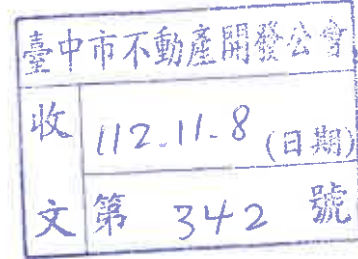 臺中市不動產開發公會
收 112.11.8 (日期)
文 第 342 號